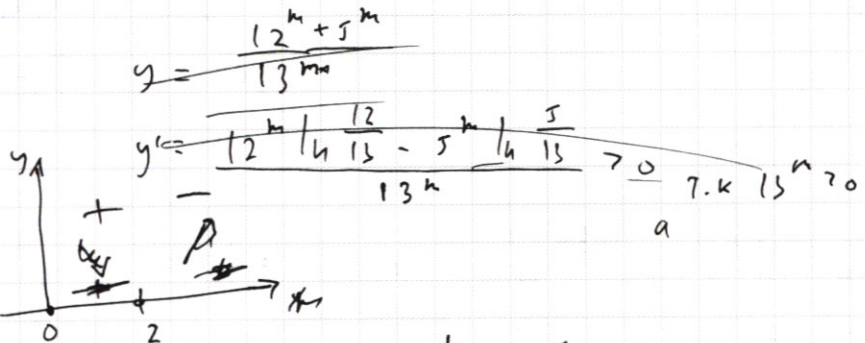 y = (12^m + 5^m) / 13^m
y' = (12^m ln 12/13 - 5^m ln 5/13) / 13^m > 0 т.к 13^m > 0
y + -
0 2